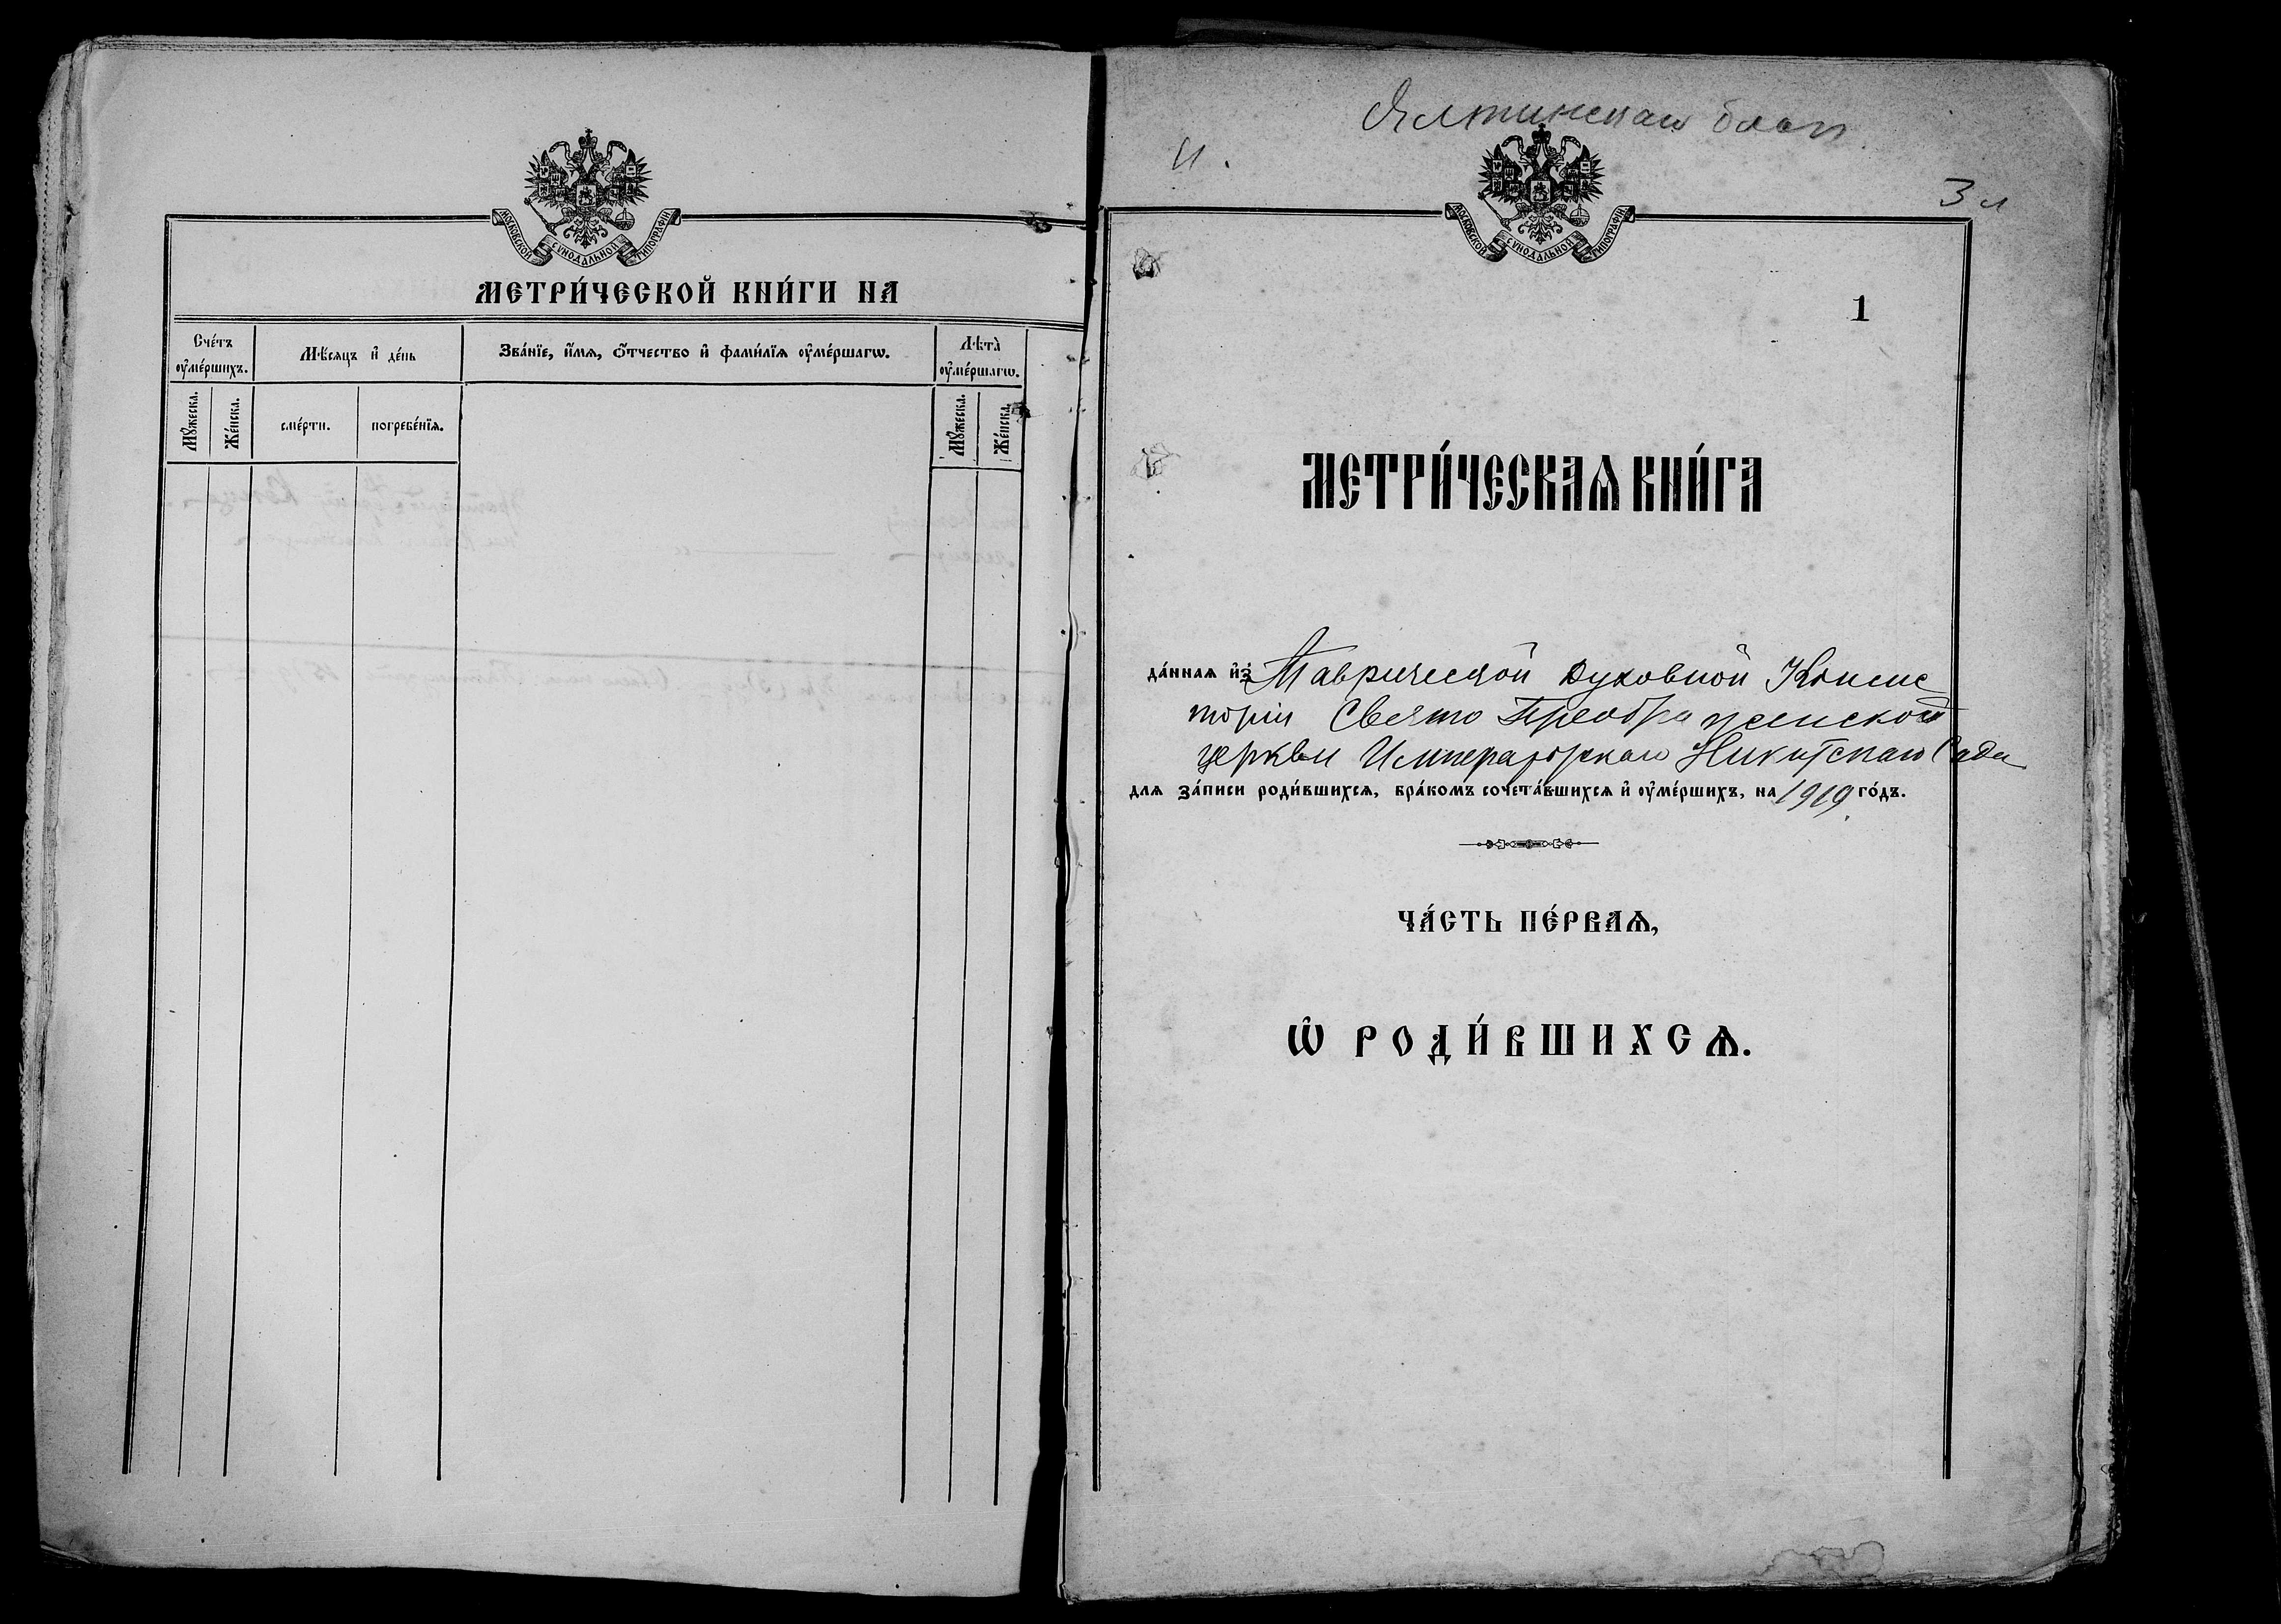 МОСКОВСКОЙ СѴНОДАЛЬНОЙ ТИПОГРАФІИ
МЕТРИ́ЧЕСКОЙ КНИ́ГИ НА
Сче́тъ ᲂу҆ме́ршихъ.
Мꙋ́жеска.
Же́нска.
Мѣ́сѧцъ и҆ де́нь
сме́рти.
погребе́нїѧ.
Зва́нїе, и҆́мѧ, ѻ҆́тчество и҆ фами́лїѧ ᲂу҆ме́ршагѡ.
Лѣ̑та̀ ᲂу҆ме́ршагѡ.
Мꙋ́жеска.
Же́нска.
Ялтинскаго благ.
3 л
МОСКОВСКОЙ СѴНОДАЛЬНОЙ ТИПОГРАФІИ
1
МЕТРИ́ЧЕСКАѦ КНИ́ГА
да́ннаѧ и҆з̾ Таврической Духовной Консис
торіи Свято Преображенской
церкви Императорскаго Никитскаго Сада
длѧ за́писи роди́вшихсѧ, бра́комъ сочета́вшихсѧ и҆ ᲂу҆ме́ршихъ, на 1919 го́дъ.
ЧА́СТЬ ПЕ́РВАѦ,
Ѽ РОДИ́ВШИХСѦ.